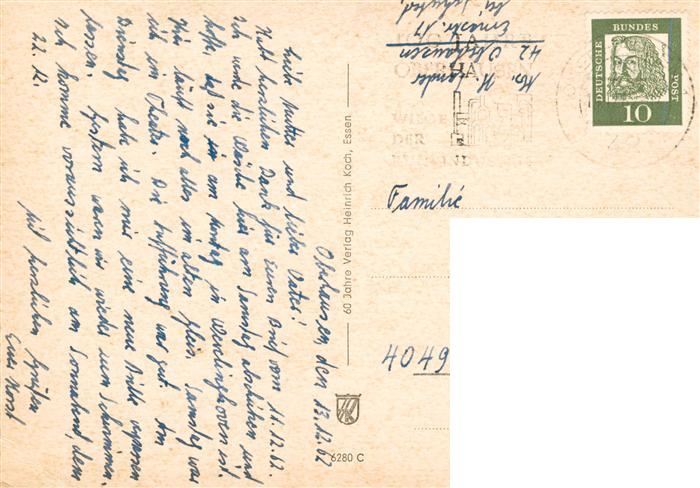 Oberhausen, den 13.12.62
Liebe Mutter und lieber Vater!
Habt herzlichen Dank für Euren Brief vom 11.12.62.
Ich werde die Wäsche hier am Samstag abschicken und
hoffe, daß sie am Montag in Wevelinghoven ist.
Hier läuft noch alles im alten Gleis. Samstag war
ich im Theater. Die Aufführung war gut. Am
Dienstag habe ich mir eine neue Brille anpassen
lassen. Gestern waren wir wieder zum Schwimmen.
Ich komme voraussichtlich am Sonnabend, dem
22.12.
Mit herzlichen Grüßen
Euer Horst
60 Jahre Verlag Heinrich Koch, Essen
6280 C
42 Oberhausen
OBERHAUSEN
WIEGE
DER
RUHRINDUSTRIE
DEUTSCHE
BUNDES
POST
10
Familie
4049